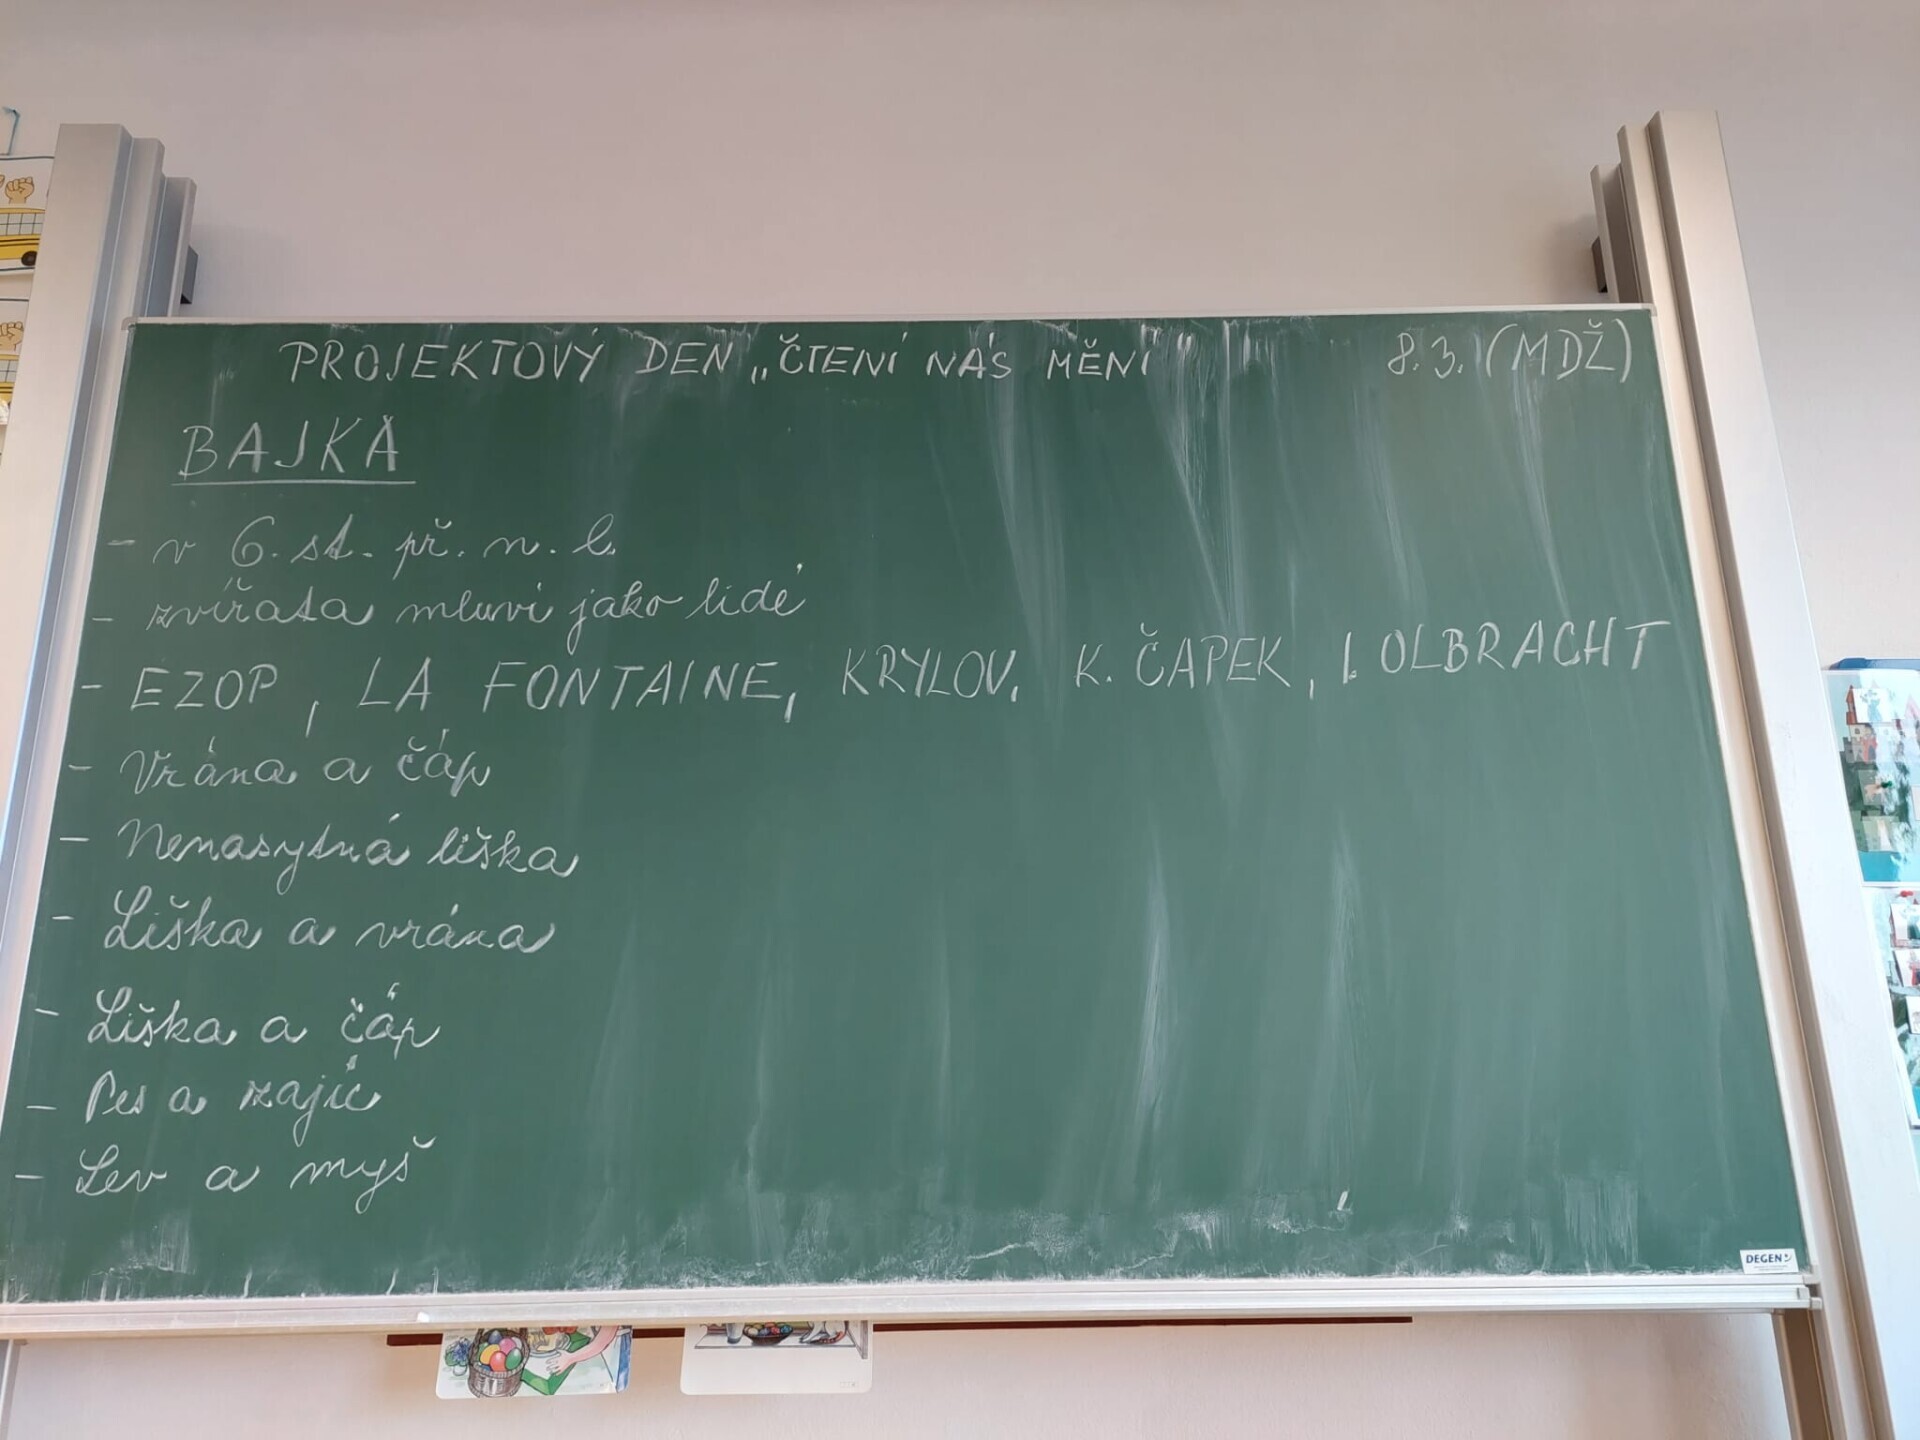 PROJEKTOVÝ DEN „ČTENÍ NÁS MĚNÍ" 8.3. (MDŽ)
BAJKA
- v 6. st. př. n. l.
- zvířata mluví jako lidé
- EZOP, LA FONTAINE, KRYLOV, K. ČAPEK, I. OLBRACHT
- Vrána a čáp
- Nenasytná liška
- Liška a vrána
- Liška a čáp
- Pes a zajíc
- Lev a myš
DEGEN